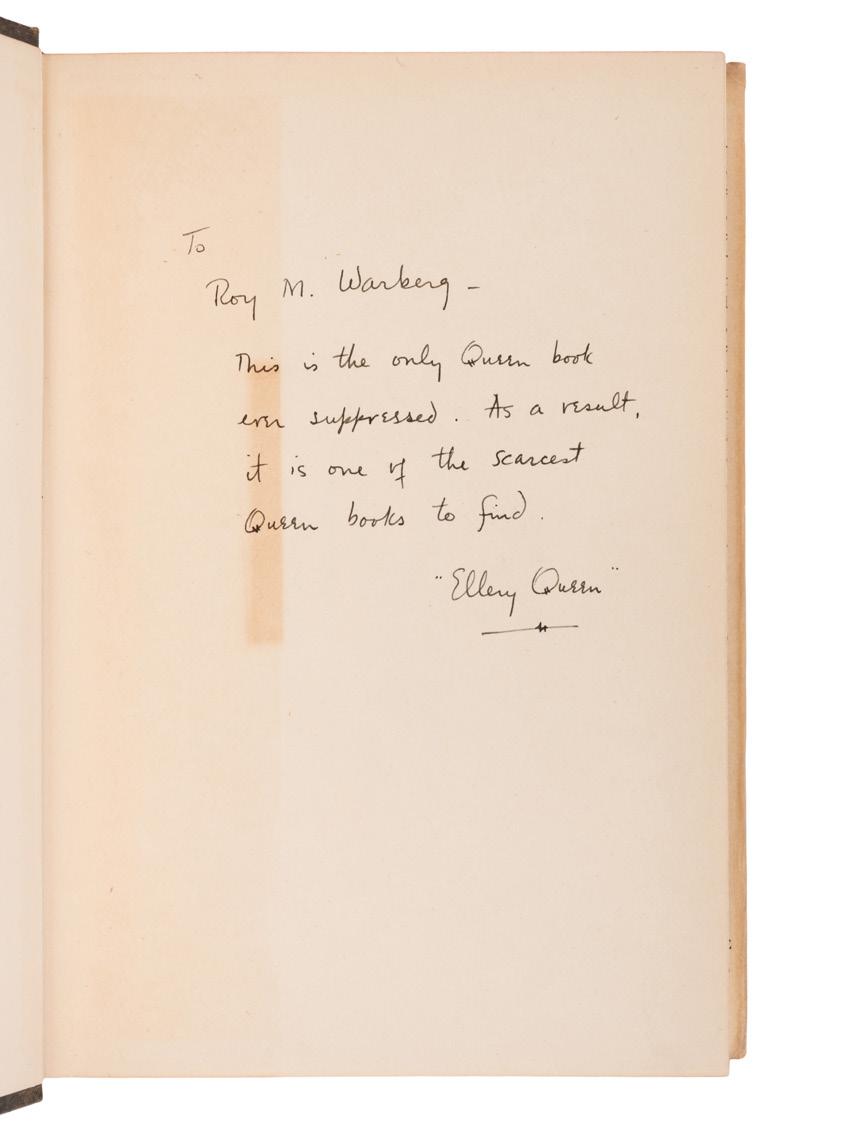 To
Roy M. Warberg -
This is the only Queen book
ever suppressed. As a result,
it is one of the scarcest
Queen books to find.
"Ellery Queen"